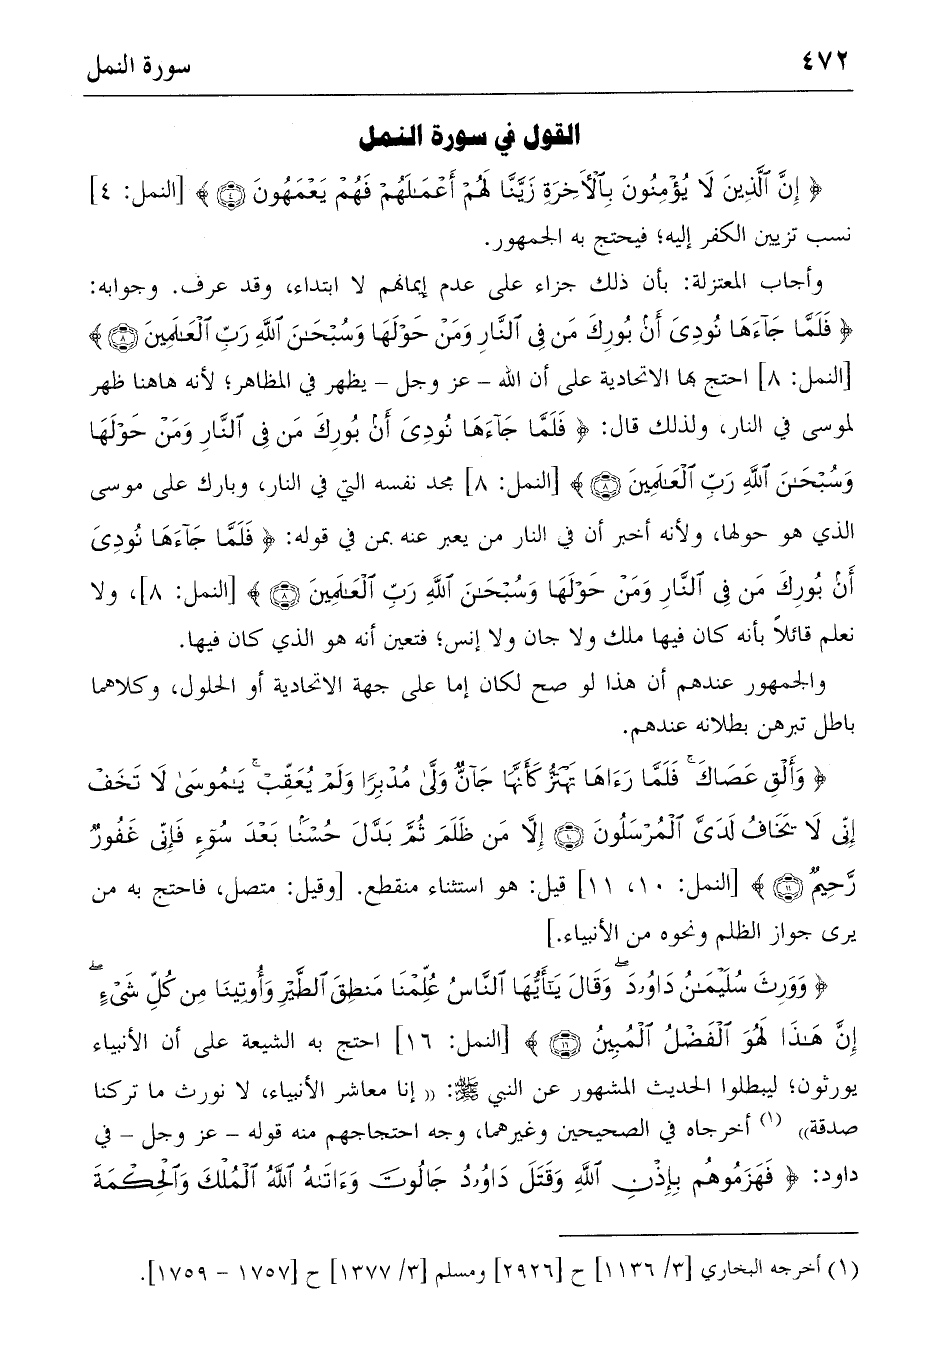 ٤٧٢ سورة النمل
القول في سورة النمل
﴿ إِنَّ ٱلَّذِينَ لَا يُؤْمِنُونَ بِٱلْأَخِرَةِ زَيَّنَّا لَهُمْ أَعْمَـٰلَهُمْ فَهُمْ يَعْمَهُونَ ۝٤ ﴾ [النمل: ٤]
نسب تزيين الكفر إليه؛ فيحتج به الجمهور.
وأجاب المعتزلة: بأن ذلك جزاء على عدم إيمانهم لا ابتداء، وقد عرف. وجوابه:
﴿ فَلَمَّا جَآءَهَا نُودِىَ أَنۢ بُورِكَ مَن فِى ٱلنَّارِ وَمَنْ حَوْلَهَا وَسُبْحَـٰنَ ٱللَّهِ رَبِّ ٱلْعَـٰلَمِينَ ۝٨ ﴾
[النمل: ٨] احتج بها الاتحادية على أن الله – عز وجل – يظهر في المظاهر؛ لأنه هاهنا ظهر
لموسى في النار، ولذلك قال: ﴿ فَلَمَّا جَآءَهَا نُودِىَ أَنۢ بُورِكَ مَن فِى ٱلنَّارِ وَمَنْ حَوْلَهَا
وَسُبْحَـٰنَ ٱللَّهِ رَبِّ ٱلْعَـٰلَمِينَ ۝٨ ﴾ [النمل: ٨] مجد نفسه التي في النار، وبارك على موسى
الذي هو حولها، ولأنه أخبر أن في النار من يعبر عنه بمن في قوله: ﴿ فَلَمَّا جَآءَهَا نُودِىَ
أَنۢ بُورِكَ مَن فِى ٱلنَّارِ وَمَنْ حَوْلَهَا وَسُبْحَـٰنَ ٱللَّهِ رَبِّ ٱلْعَـٰلَمِينَ ۝٨ ﴾ [النمل: ٨]، ولا
نعلم قائلاً بأنه كان فيها ملك ولا جان ولا إنس؛ فتعين أنه هو الذي كان فيها.
والجمهور عندهم أن هذا لو صح لكان إما على جهة الاتحادية أو الحلول، وكلاهما
باطل تبرهن بطلانه عندهم.
﴿ وَأَلْقِ عَصَاكَ ۚ فَلَمَّا رَءَاهَا تَهْتَزُّ كَأَنَّهَا جَآنٌّ وَلَّىٰ مُدْبِرًا وَلَمْ يُعَقِّبْ ۚ يَـٰمُوسَىٰ لَا تَخَفْ
إِنِّى لَا يَخَافُ لَدَىَّ ٱلْمُرْسَلُونَ ۝١٠ إِلَّا مَن ظَلَمَ ثُمَّ بَدَّلَ حُسْنًۢا بَعْدَ سُوٓءٍ فَإِنِّى غَفُورٌ
رَّحِيمٌ ۝١١ ﴾ [النمل: ١٠، ١١] قيل: هو استثناء منقطع. [وقيل: متصل، فاحتج به من
يرى جواز الظلم ونحوه من الأنبياء.]
﴿ وَوَرِثَ سُلَيْمَـٰنُ دَاوُۥدَ ۖ وَقَالَ يَـٰٓأَيُّهَا ٱلنَّاسُ عُلِّمْنَا مَنطِقَ ٱلطَّيْرِ وَأُوتِينَا مِن كُلِّ شَىْءٍ ۖ
إِنَّ هَـٰذَا لَهُوَ ٱلْفَضْلُ ٱلْمُبِينُ ۝١٦ ﴾ [النمل: ١٦] احتج به الشيعة على أن الأنبياء
يورثون؛ ليبطلوا الحديث المشهور عن النبي ﷺ: (( إنا معاشر الأنبياء، لا نورث ما تركنا
صدقة)) (١) أخرجاه في الصحيحين وغيرهما، وجه احتجاجهم منه قوله – عز وجل – في
داود: ﴿ فَهَزَمُوهُم بِإِذْنِ ٱللَّهِ وَقَتَلَ دَاوُۥدُ جَالُوتَ وَءَاتَىٰهُ ٱللَّهُ ٱلْمُلْكَ وَٱلْحِكْمَةَ
(١) أخرجه البخاري [٣/ ١١٣٦] ح [٢٩٢٦] ومسلم [٣/ ١٣٧٧] ح [١٧٥٧ – ١٧٥٩].